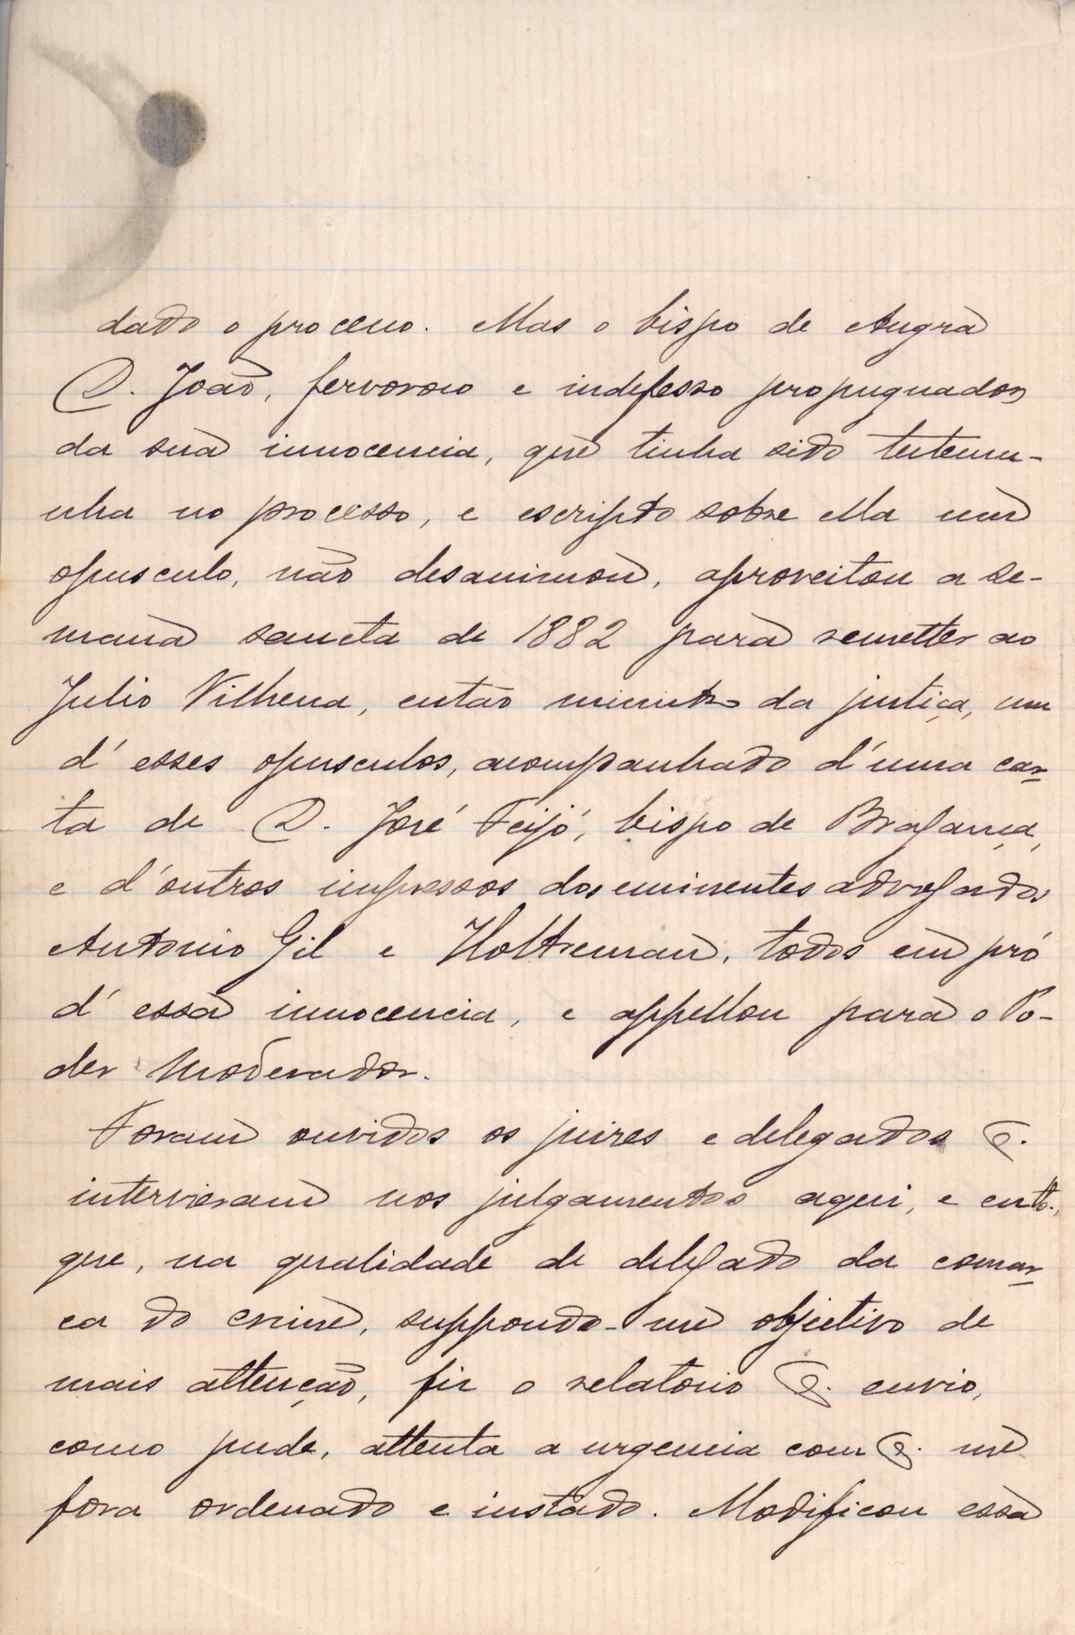 dado o processo. Mas o bispo de Angra
D. João, fervoroso e indefesso propugnador
da sua innocencia, que tinha sido testemu-
nha no processo, e escripto sobre ella um
opusculo, não desanimou, aproveitou a se-
mana sancta de 1882 para remetter ao
Julio Vilhena, então ministro da justiça, um
d'esses opusculos, acompanhado d'uma car-
ta de D. José Feijó, bispo de Bragança,
e d'outros impressos dos eminentes advogados
Antonio Gil e Holtreman, todos em pró
d'essa innocencia, e appellou para o Po-
der Moderador.
Foram ouvidos os juizes e delegados q.
intervieram nos julgamentos aqui, e eu
que, na qualidade de delegado da comar-
ca do crime, suppondo-me objectivo de
mais attenção, fiz o relatorio q. envio,
como pude, attenta a urgencia com q. me
fora ordenado e instado. Modificou essa